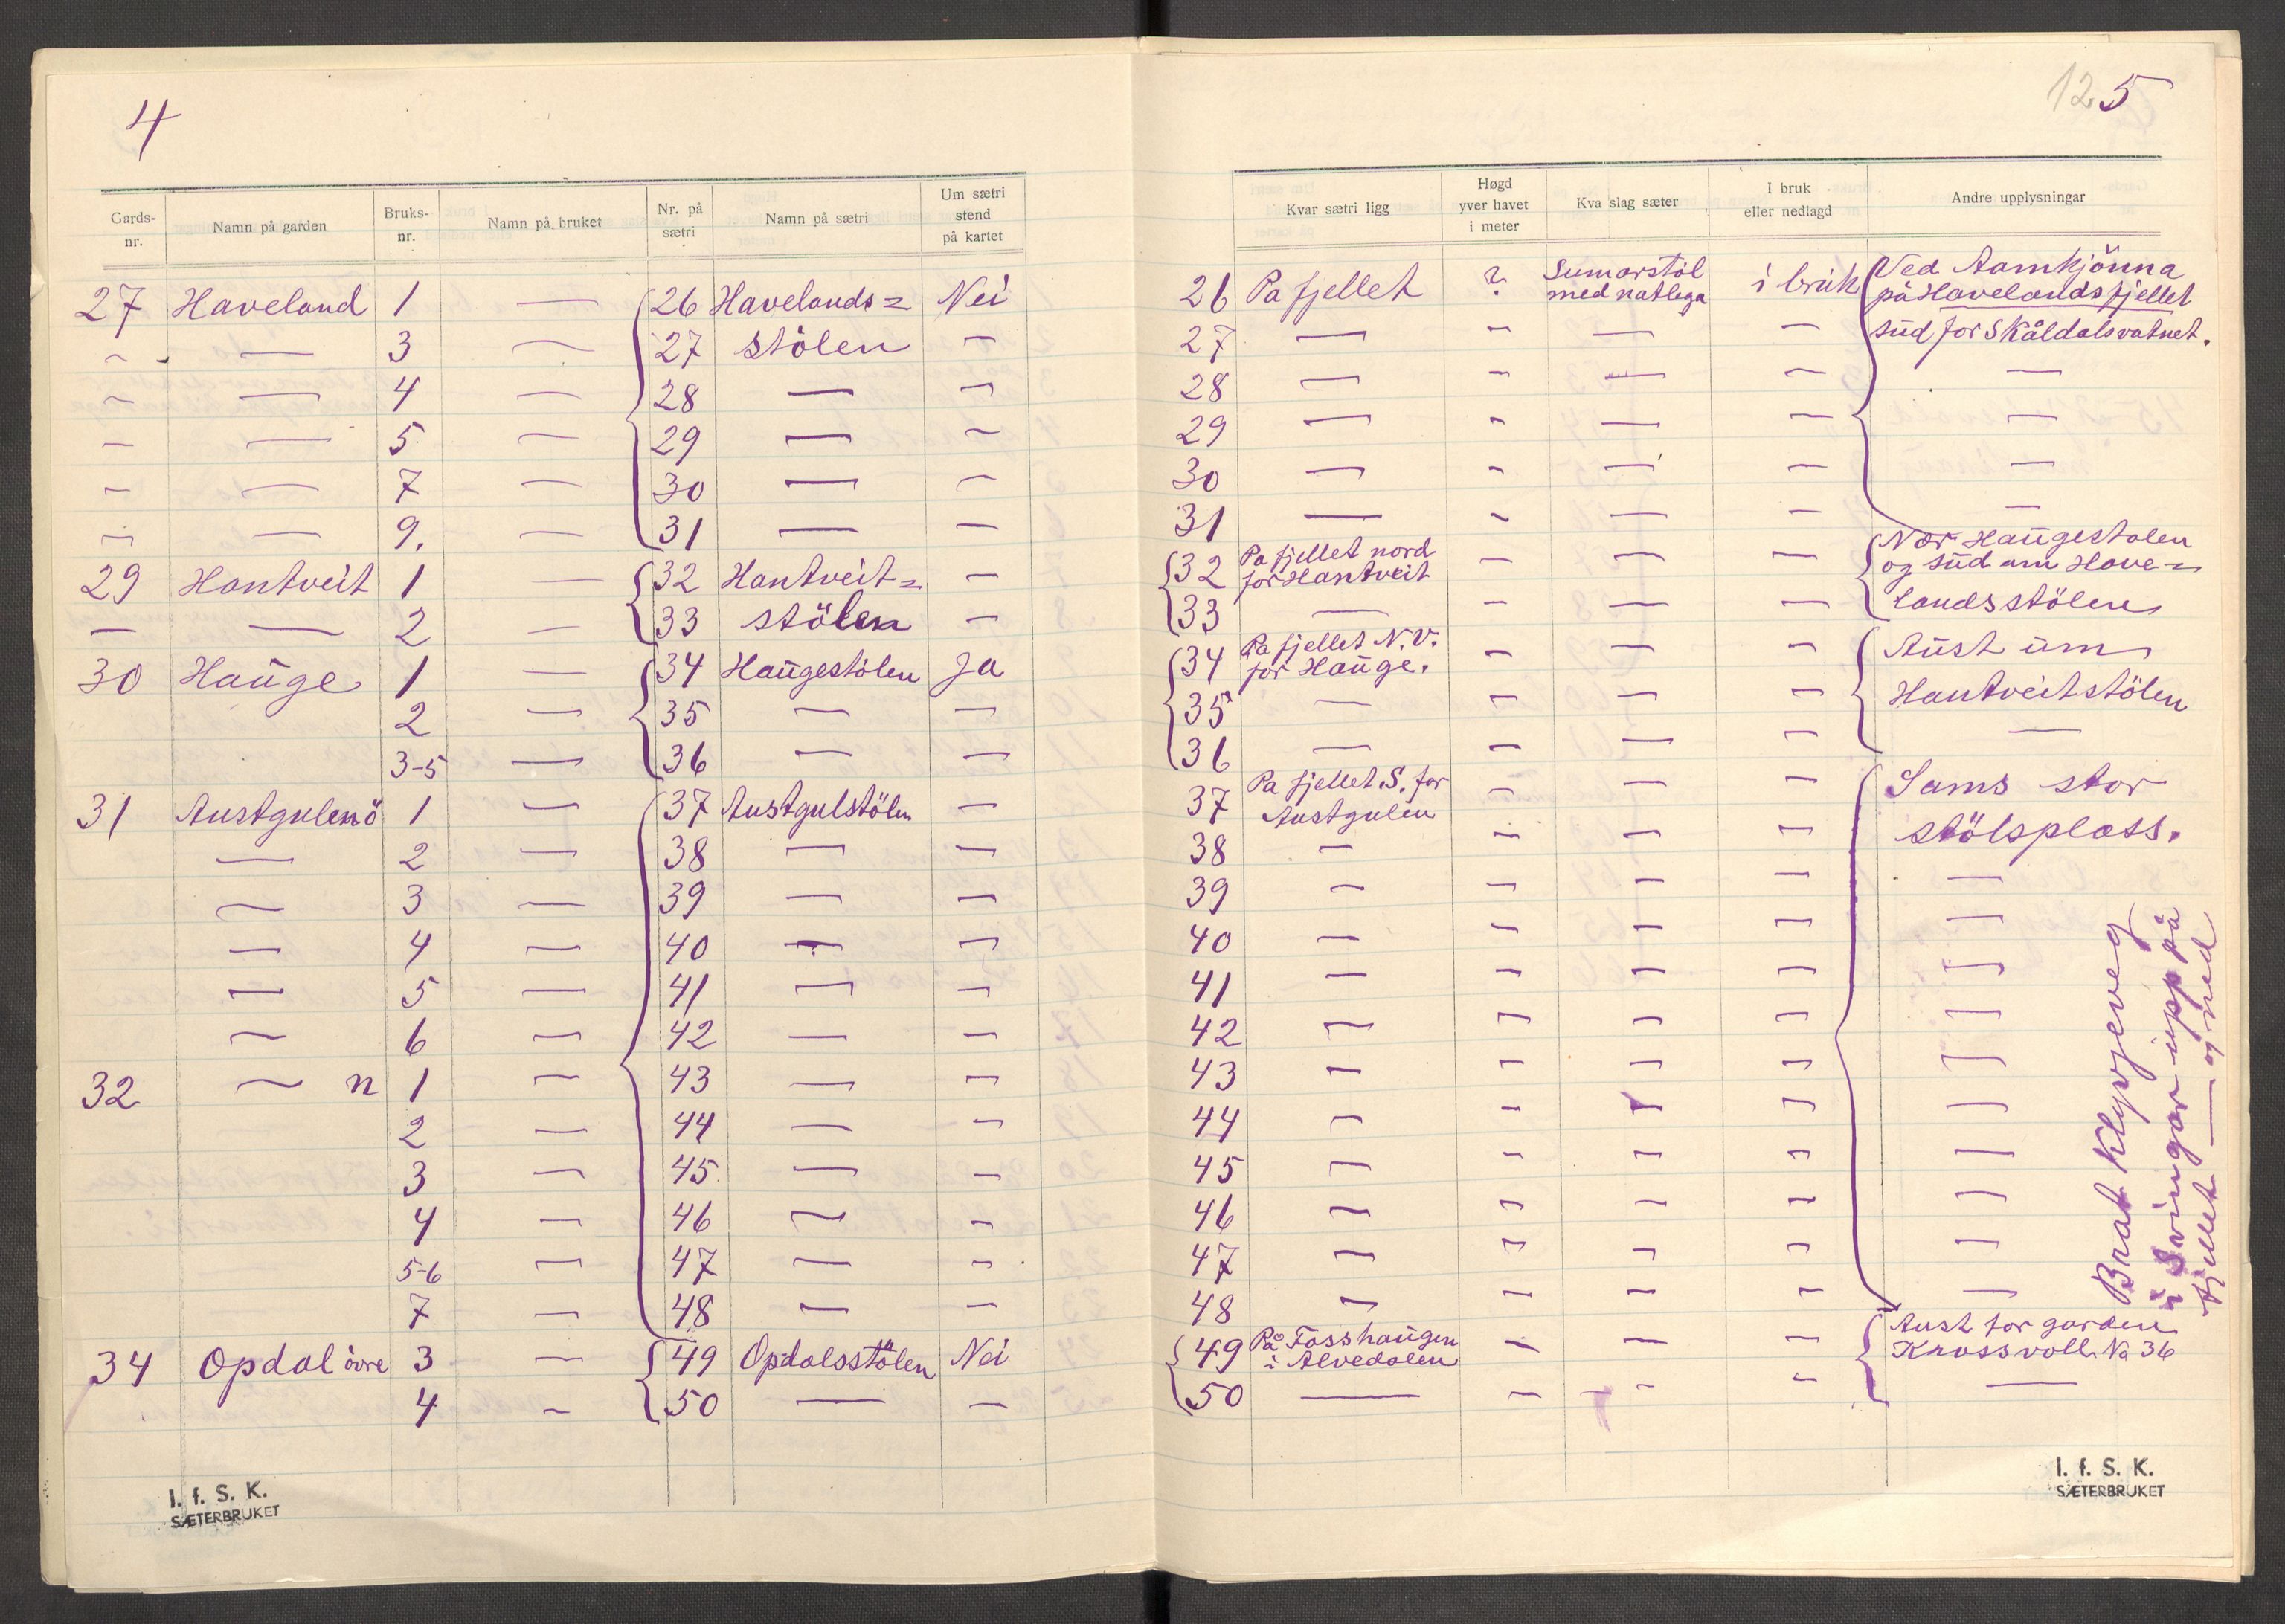 4
Gards-nr. | Namn på garden | Bruks-nr. | Namn på bruket | Nr. på sætri | Namn på sætri | Um sætri stend på kartet
27 Haveland 1 — 26 Havelands= Nei
- — 3 — 27 stölen —
- — 4 — 28 — —
- — 5 — 29 — —
- — 7 — 30 — —
- — 9. — 31 — —
29 Hantveit 1 — 32 Hantveit= —
— — 2 — 33 stölen —
30 Hauge 1 — 34 Haugestölen Ja
2 — 35 — —
3-5 — 36 — —
31 Austgulen ö 1 — 37 Austgulstölen —
— 2 — 38 — —
— 3 — 39 — —
— 4 — 40 — —
— 5 — 41 — —
— 6 — 42 — —
32 — n 1 — 43 — —
2 — 44 — —
3 — 45 — —
4 — 46 — —
5-6 — 47 — —
7 — 48 — —
34 Opdal övre 3 — 49 Opdalsstölen Nei
4 — 50 — —
I. f. S. K.
SÆTERBRUKET
12 5
Kvar sætri ligg | Høgd yver havet i meter | Kva slag sæter | I bruk eller nedlagd | Andre upplysningar
26 Pa fjellet ? Sumarstöl med natlega i bruk Ved Aamkjönna
på Havelandsfjellet
27 — - — — sud for Skåldalsvatnet.
28 — - — — —
29 — - — — —
30 — - — — —
31 — - — — —
32 Pa fjellet nord for Hantveit — — — Nær Haugestolen
og sud um Have=
33 — — — — landsstölen
34 Pa fjellet N.V. for Hauge. — — — Aust um
35 — — — — Hantveitstölen
36 — — — — —
37 Pa fjellet S. for Austgulen — — — Sams stor
38 — — — — stölsplass.
39 — — — — —
40 — — — — —
41 — — — — —
42 — — — — —
43 — — — — —
44 — — — — —
45 — — — — —
46 — — — — —
47 — — — — —
48 — — — — —
Brat Klypjeveg
i Svingar upp på
fjellet — og ned
49 På Fosshaugen i Alvedalen — — — Aust for garden
Krossvoll No 36
50 — — — — —
I. f. S. K.
SÆTERBRUKET